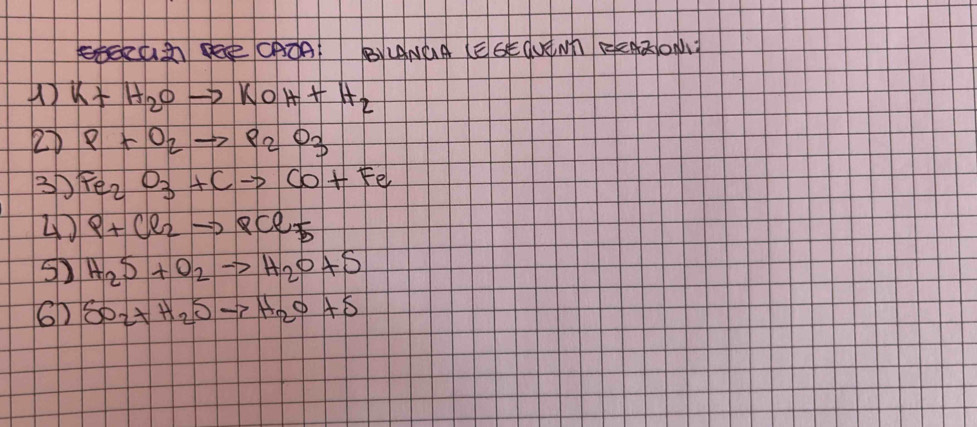 ESERCIZI PER CASA: BILANCIA LE SEGUENTI REAZIONI:
1) K + H₂O → KOH + H₂
2) P + O₂ → P₂O₃
3) Fe₂O₃ + C → CO + Fe
4) P + Cl₂ → PCl₅
5) H₂S + O₂ → H₂O + S
6) SO₂ + H₂S → H₂O + S